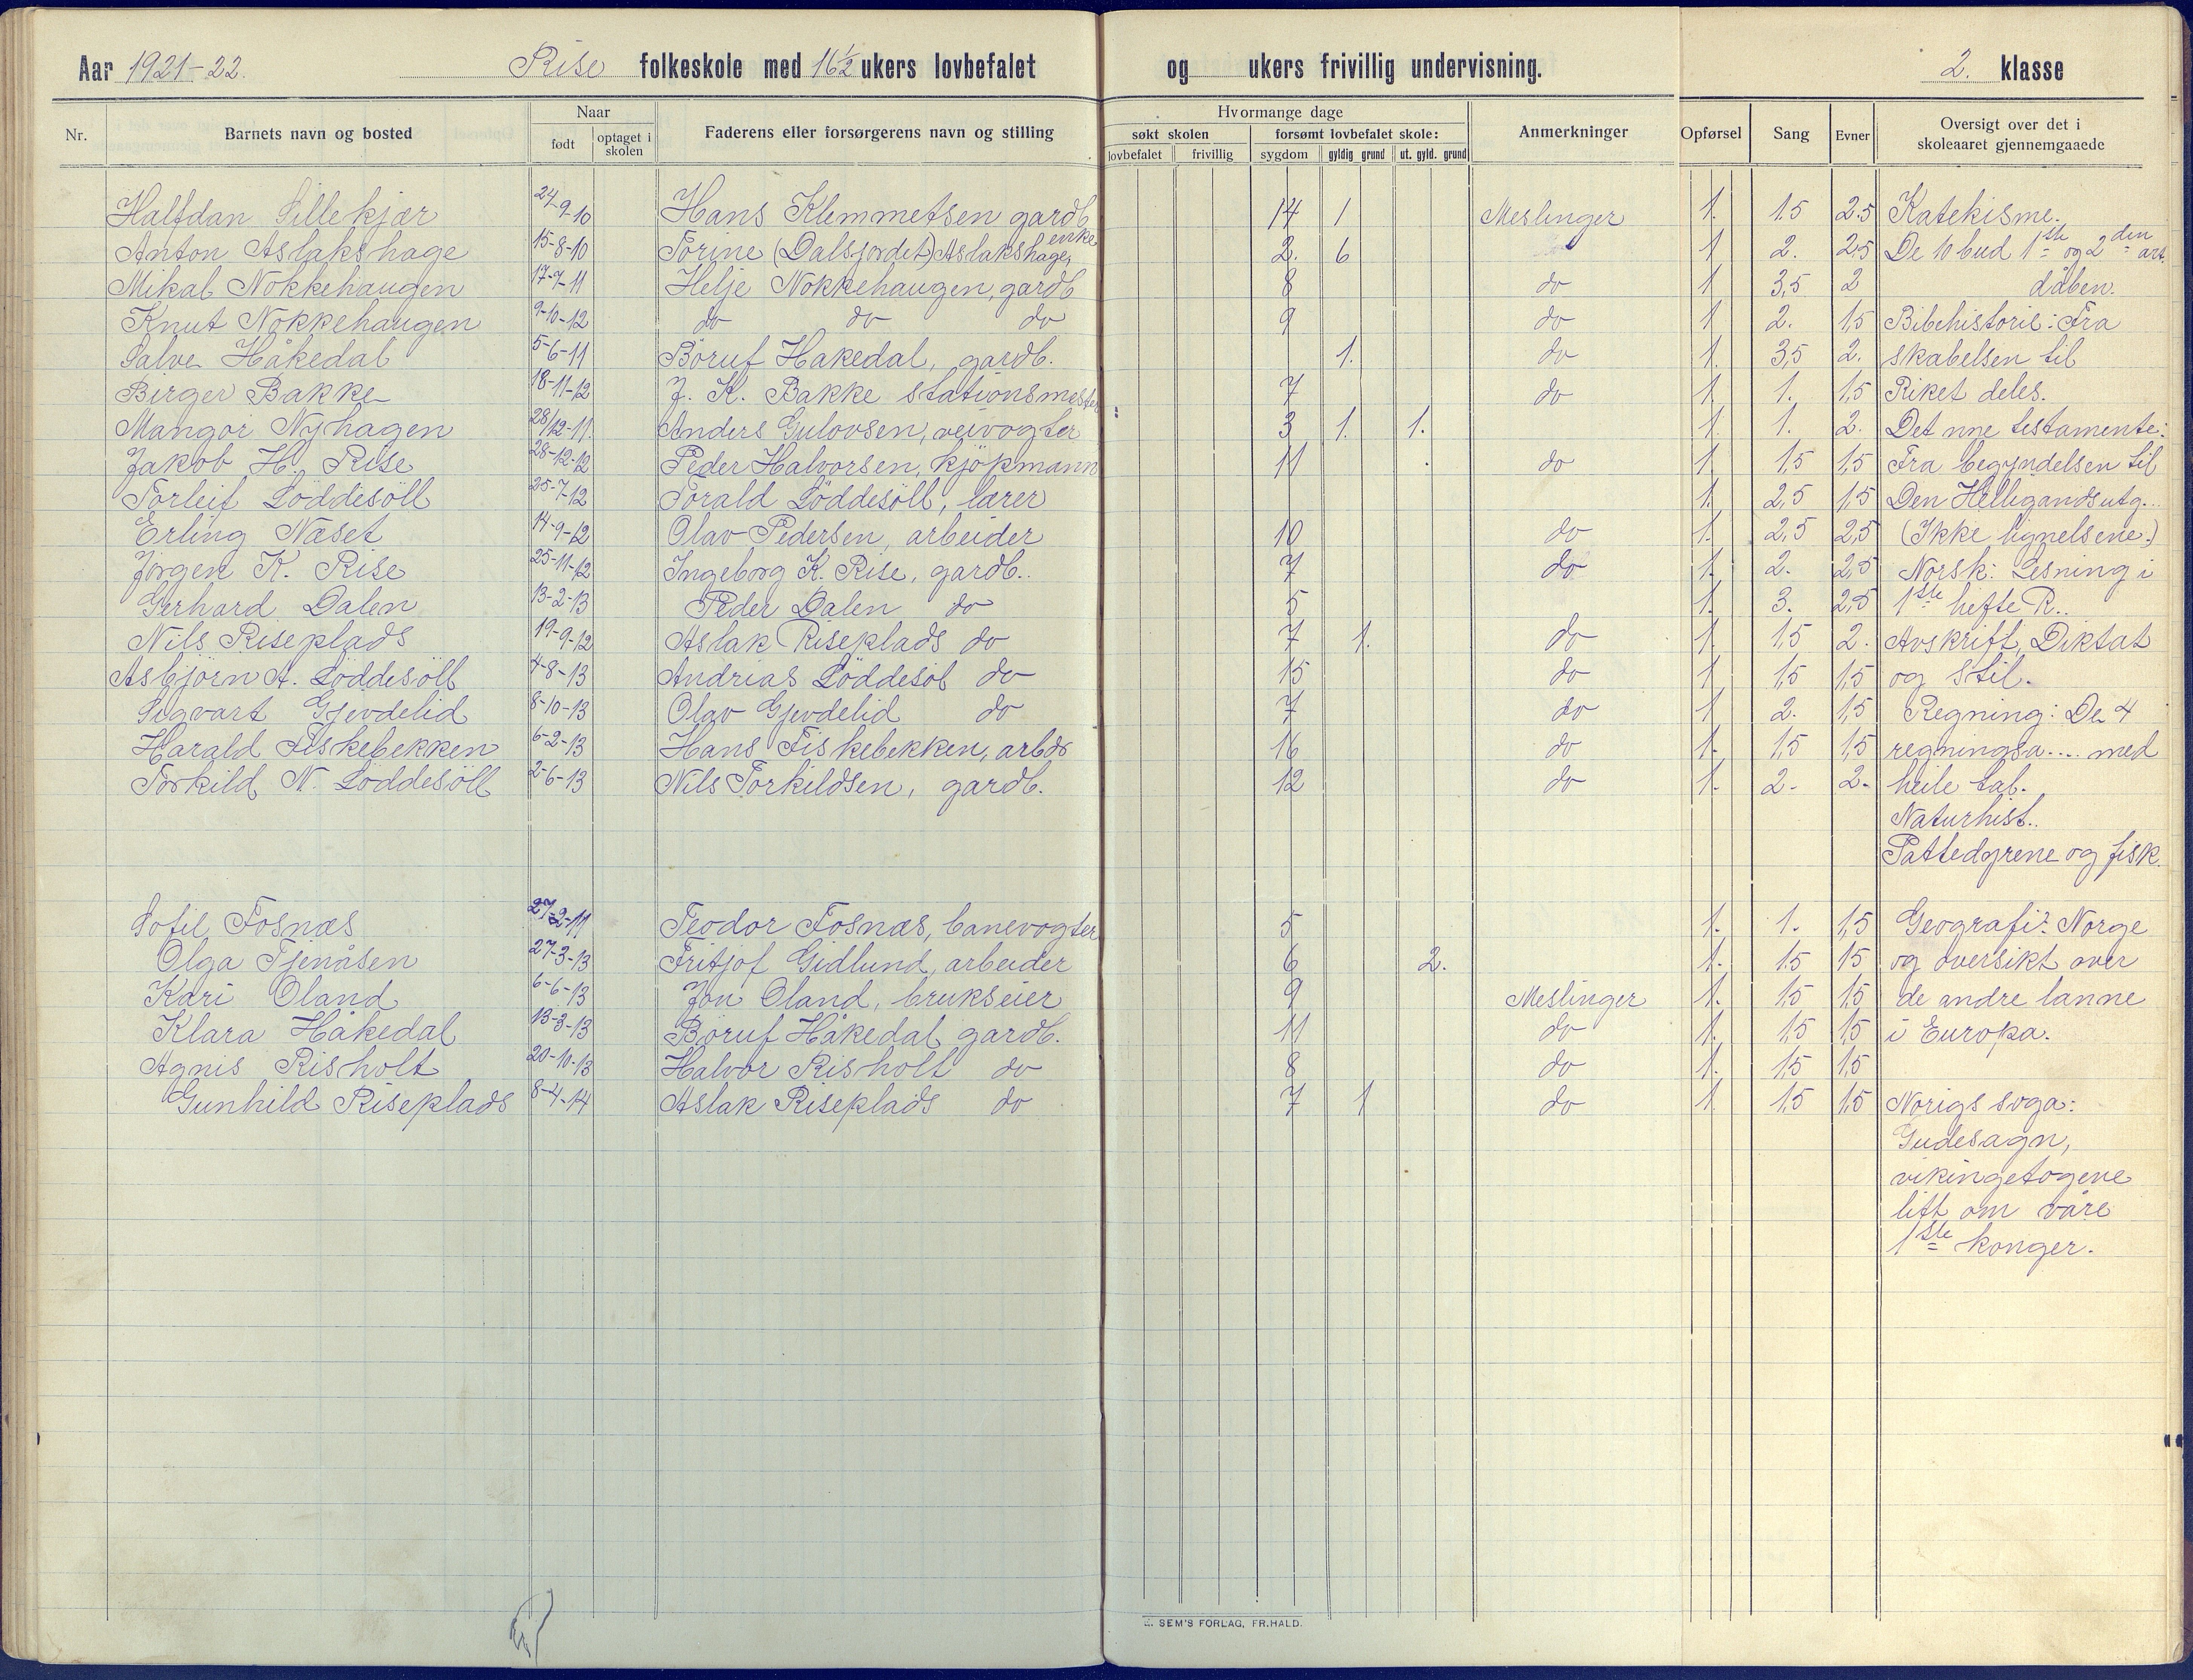 Aar 1921-22. Rise folkeskole med 16½ ukers lovbefalet og ukers frivillig undervisning. 2. klasse
Nr. Barnets navn og bosted Naar født optaget i skolen Faderens eller forsørgerens navn og stilling Hvormange dage søkt skolen lovbefalet frivillig forsømt lovbefalet skole: sygdom gyldig grund ut. gyld. grund Anmerkninger Opførsel Sang Evner Oversigt over det i skoleaaret gjennemgaaede
Halfdan Lillekjær 24-9-10 Hans Klemmetsen gardb 14 1 Meslinger 1. 1.5 2.5 Katekisme.
Anton Aslakshage 15-8-10 Torine (Dalsjordet) Aslakshage, enke 2. 6 1 2. 2.5 De 10 bud 1ste og 2den art.
Mikal Nokkehaugen 17-7-11 Helje Nokkehaugen, gardb 8 do 1 3,5 2 dåben.
Knut Nokkehaugen 9-10-12 do do do 9 do 1 2. 1,5 Bibehistorie: Fra
Salve Håkedal 5-6-11 Boruf Hakedal, gardb. 1. do 1. 3,5 2. skabelsen til
Birger Bakke 18-11-12 J. K. Bakke stationsmester 7 do 1. 1. 1,5 Riket deles.
Mangor Nyhagen 28/12-11. Anders Gulovsen, veivogter 3 1. 1. 1. 1. 2. Det nne testamente:
Jakob H. Rise 28-12-12 Peder Halvorsen, kjöpmann 11 do 1. 1,5 1,5 Fra begyndelsen til
Torleif Löddesöll 25-7-12 Torald Löddesöll, lærer 1. 2,5 1,5 Den Helligandsutg..
Erling Næset 14-9-12 Olav Pedersen, arbeider 10 do 1. 2,5 2,5 (Ikke lignelsene.)
Jörgen K. Rise 25-11-12 Ingeborg K. Rise, gardb.. 7 do 1. 2. 2,5 Norsk: Lesning i
Gerhard Dalen 13-2-13 Peder Dalen do 5 1. 3. 2,5 1ste hefte R..
Nils Riseplads 19-9-12 Aslak Riseplads do 7 1. do 1. 1,5 2. Avskrift, Diktat
Asbjörn A. Löddesöll 4-8-13 Andrias Löddesöl do 15 do 1 1,5 1,5 og Stil.
Sigvart Gjevdelid 8-10-13 Olav Gjevdelid do 7 do 1 2. 1,5 Regning: De 4
Harald Fiskebekken 6-2-13 Hans Fiskebekken, arbdr 16 do 1. 1,5 1,5 regningsa.... med
Torkild N. Löddesöll 2-6-13 Nils Torkildsen, gardb. 12 do 1. 2. 2. heile tal.
Naturhist..
Pattedyrene og fisk.
Sofie Fosnæs 27-2-11 Teodor Fosnæs, banevogter 5 1. 1. 1,5 Geografi: Norge
Olga Tjenåsen 27-3-13 Fritjof Gidlund, arbeider 6 2. 1. 1.5 15 og oversikt over
Kari Öland 6-6-13 Jon Öland, brukseier 9 Meslinger 1. 1,5 1,5 de andre lanne
Klara Håkedal 13-3-13 Boruf Håkedal gardb. 11 do 1. 1,5 1,5 i Europa.
Agnis Risholt 20-10-13 Halvor Risholt do 8 do 1. 1,5 1,5
Gunhild Riseplads 8-4-14 Aslak Riseplads do 7 1 do 1. 1,5 1,5 Norigs soga:
Gudesagn,
vikingetogene
litt om våre
1ste konger.
SEM'S FORLAG, FR.HALD.